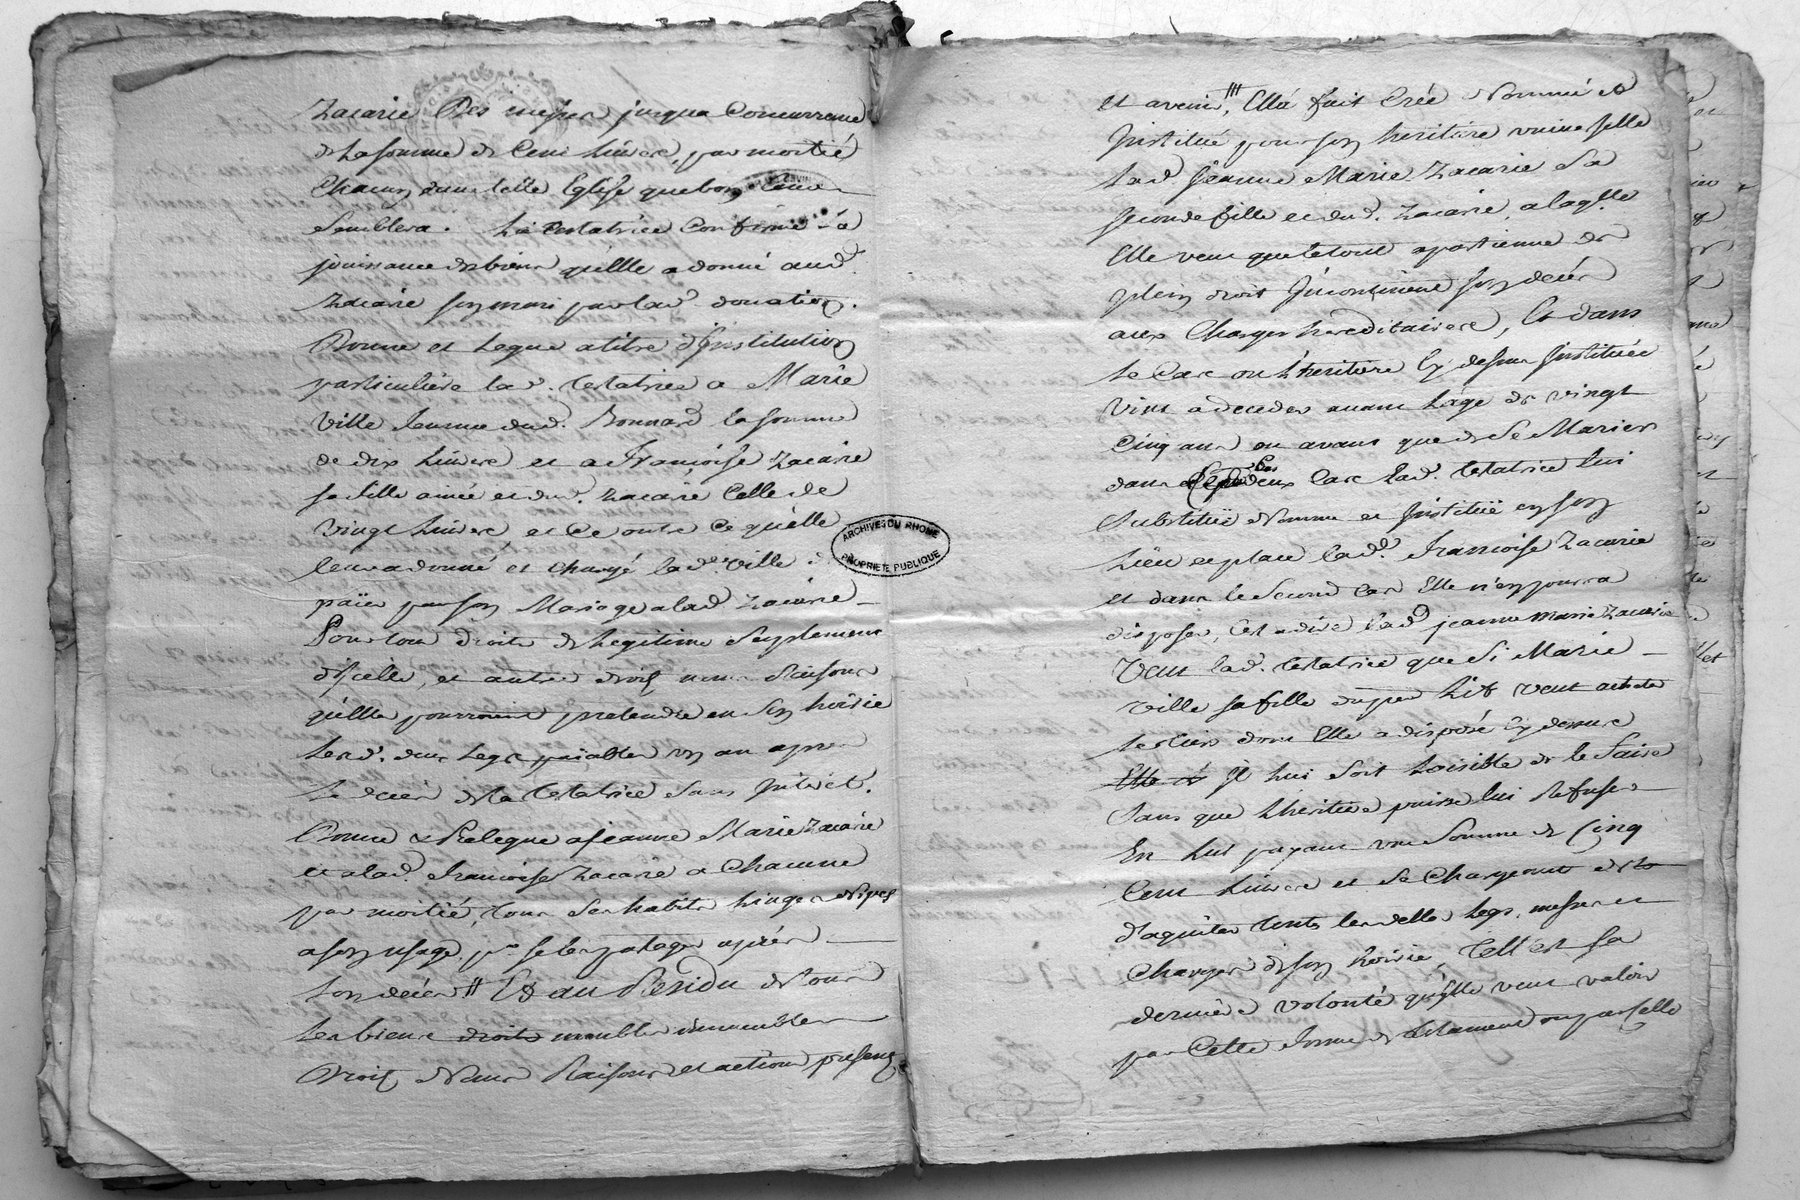 Zacarie Des messes jusqua Concurrance
de La somme de Cent Livres, par moitié
Chacun dans telle Eglise que bon leur
Semblera. La testatrice Confirme la
jouissance des biens qu'elle a donné aud.
Zacarie son mari par lad. donation.
Donne et Legue a titre d'Institution
particuliere lad. testatrice a Marie
Ville femme dud. Bonnard la somme
de dix Livres et a Françoise Zacarie
sa fille ainée et dud. Zacarie Celle de
vingt Livres, et Ce outre Ce qu'elle
leur a donné et Chargé lad. Ville
païer par son Mariage a lad. Zacarie
Pour tous droits de Legitime Suplement
d'Icelle, et autres droits noms Raisons
qu'elles pourroient pretendre en Son hoirie
Lesd. deux Legs païables un an apres
Le deces de la testatrice Sans Interet.
Donne & Prelegue a jeanne Marie Zacarie
et a lad. Françoise Zacarie a Chacune
par moitié, tous Ses habits Linges Nipes
a son usage, pr se les partager après
son deces # Et au Residu de tous
Les biens droits meubles immeubles
Droits Noms Raisons et actions presents
et avenir, Ella fait Crée Nommé et
Institué pour son heritiere universelle
Lad. Jeanne Marie Zacarie Sa
seconde fille et dud. Zacarie, a laqlle
Elle veut que le tout apartienne de
plein droit Incontinent son deces
aux Charges hereditaires, Et dans
Le Cas ou L'heritiere Cy dessus Instituée
vint a deceder avant L'age de vingt
Cinq ans ou avant que de Se Marier
dans Ces deux Cas Lad. testatrice lui
Substitüe Nomme et Institüe en son
Lieu et place Lad. Françoise Zacarie
et dans le Second Cas Elle n'en pourra
disposer, C'est a dire Lad. jeanne marie Zacarie
Veut lad. testatrice que Si Marie
Ville sa fille du per Lit veut acheter
les biens dont Elle a disposé Cy dessus
Elle Il Lui Soit Loisible de le Faire
Sans que L'heritiere puisse lui Refuser
En Lui payant une Somme de Cinq
Cent Livres et Se Chargeant de
d'aquiter touts les dettes Legs, messes et
Charges de son hoirie, Tell'est Sa
derniere volonté qu'elle veut valoir
par Cette forme de testament ou par Celle
ARCHIVES DU RHONE
PROPRIETE PUBLIQUE